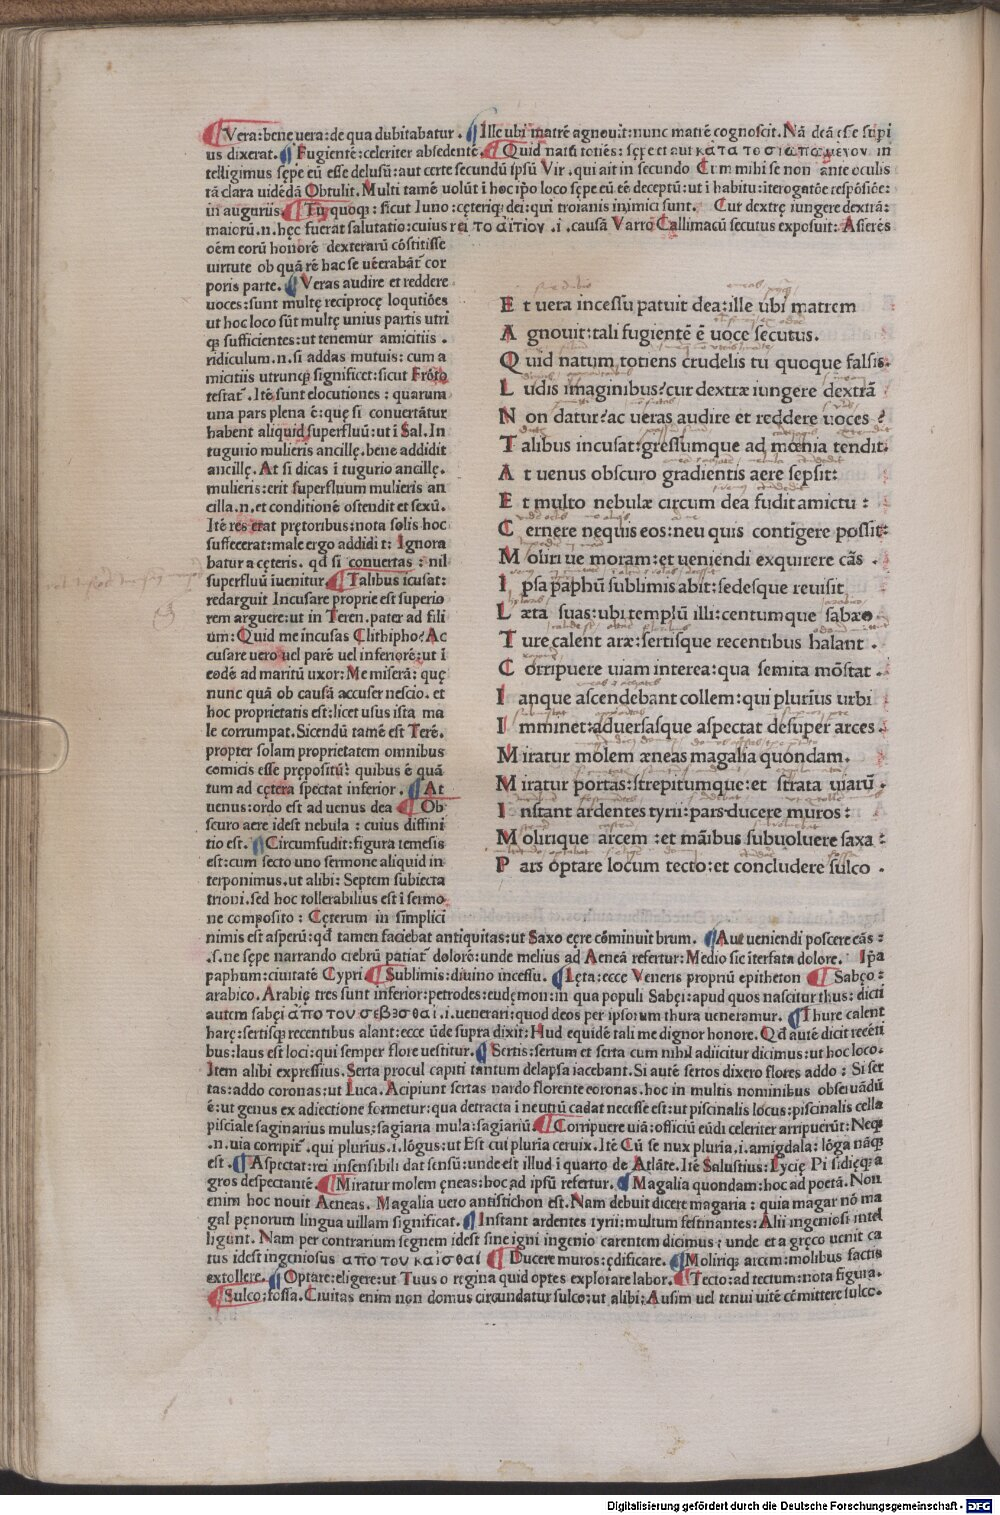 Vera:bene uera:de qua dubitabatur. Ille ubi matrē agnouit:nunc matrē cognoscit. Nā deā esse supi
us dixerat. Fugientē:celeriter absedentē. Quid natū totiēs: sępe et aut κατα το σιωπωμενον in
telligimus sępe eū esse delusū:aut certe secundū ipsū Vir. qui ait in secundo Cum mihi se non ante oculis
tā clara uidēdā Obtulit. Multi tamē uolūt ī hoc ip̄o loco sępe eū eē deceptū:ut ī habitu:īterogatōe respōsiōe:
in auguriis. Tu quoq̄: sicut Iuno:cęteriq̄ dei:qui troianis inimici sunt. Cur dextrę iungere dextrā:
maiorū.n.hęc fuerat salutatio:cuius rei το αιτιον .i. causā Varro Callimacū secutus exposuit: Asserēs
oēm eorū honorē dexterarū cōstitisse
uirtute ob quā rē hac se uēerabāt cor
poris parte. Veras audire et reddere
uoces:sunt multę reciprocę loqutiōes
ut hoc loco sūt multę unius partis utri
q̄ sufficientes:ut tenemur amicitiis.
ridiculum.n.si addas mutuis: cum a
micitiis utrunq̄ significet:sicut Frōto
testat̄. Itē sunt elocutiones: quarum
una pars plena ē:quę si conuertātur
habent aliquid superfluū:ut ī Sal. In
tugurio mulieris ancillę.bene addidit
ancillę. At si dicas ī tugurio ancillę.
mulieris:erit superfluum mulieris an
cilla.n.et conditionē ostendit et sexū.
Itē res erat prętoribus:nota solis hoc
suffecerat:male ergo addidit: Ignora
batur a cęteris. qd̄ si conuertas: nil
superfluū īuenitur. Talibus īcusat:
redarguit Incusare proprie est superio
rem arguere:ut in Teren.pater ad fili
um: Quid me incusas Clithipho? Ac
cusare uero uel parē uel inferiorē:ut ī
eodē ad maritū uxor: Me miserā: quę
nunc quā ob causā accuser nescio. et
hoc proprietatis est:licet usus ista ma
le corrumpat. Sicendū tamē est Terē.
propter solam proprietatem omnibus
comicis esse prępositū: quibus ē quā
tum ad cętera spectat inferior. At
uenus:ordo est ad uenus dea Ob
scuro aere idest nebula: cuius diffini
tio est. Circumfudit:figura temesis
est:cum secto uno sermone aliquid in
terponimus.ut alibi: Septem subiecta
trioni.sed hoc tollerabilius est ī sermo
ne composito: Cęterum in simplici
E t uera incessu patuit dea:ille ubi matrem
A gnouit:tali fugientē ē uoce secutus.
Q uid natum totiens crudelis tu quoque falsis
L udis imaginibus?cur dextræ iungere dextrā
N on datur?ac ueras audire et reddere uoces?
T alibus incusat:gressumque ad mœnia tendit.
A t uenus obscuro gradientis aere sepsit:
E t multo nebulæ circum dea fudit amictu:
C ernere nequis eos:neu quis contīgere possit:
M oliri ue moram:et ueniendi exquirere cās.
I psa paphū sublimis abit:sedesque reuisit
L æta suas:ubi templū illi:centumque sabæo
T ure calent aræ:sertisque recentibus halant.
C orripuere uiam interea:qua semita mōstat.
I anque ascendebant collem:qui plurius urbi
I mminet:aduersasque aspectat desuper arces.
M iratur molem æneas magalia quondam.
M iratur portas:strepitumque:et strata uiarū.
I nstant ardentes tyrii:pars ducere muros:
M olirique arcem:et māibus subuoluere saxa:
P ars optare locum tecto:et concludere sulco.
nimis est asperū:qd̄ tamen faciebat antiquitas:ut Saxo cęre cōminuit brum. Aut ueniendi poscere cās:
.s.ne sępe narrando crebrū patiat̄ dolorē:unde melius ad Aeneā refertur: Medio sic īterfata dolore. Ip̄a
paphum:ciuitatē Cypri Sublimis:diuino incessu. Lęta:ecce Veneris propriū epitheton Sabęo:
arabico. Arabię tres sunt inferior:petrodes:eudęmon:in qua populi Sabęi:apud quos nascitur thus: dicti
autem sabęi απο του σεβεσθαι.i.uenerari:quod deos per ipsorum thura ueneramur. Thure calent
harę:sertisq̄ recentibus alant:ecce ūde supra dixit: Hud equidē tali me dignor honore. Qd̄ autē dicit recēti
bus:laus est loci:qui semper flore uestitur. Sertis:sertum et serta cum nihil adiicitur dicimus:ut hoc loco.
Item alibi expressius. Serta procul capiti tantum delapsa iacebant. Si autē sertos dixero flores addo: Si ser
tas:addo coronas:ut Luca. Accipiunt sertas nardo florente coronas.hoc in multis nominibus obseruādū
ē:ut genus ex adiectione formetur:qua detracta ī neutrū cadat necesse est:ut piscinalis locus:piscinalis cella
pisciale saginarius mulus:sagiaria mula:sagiariū. Corripuere uiā:officiū eūdi celeriter arripuerūt: Neq̄
.n.uia corripit̄. qui plurius.i.lōgus:ut Est cui pluria ceruix. Itē Cū se nux pluria.i.amigdala: lōga nāq̄
est. Aspectat:rei insensibili dat sensū:unde est illud ī quarto de Atlāte. Itē Salustius: Lycię Pisidięq̄ a
gros despectantē. Miratur molem ęneas:hoc ad ipsū refertur. Magalia quondam:hoc ad poetā. Non
enim hoc nouit Aeneas. Magalia uero antistichon est. Nam debuit dicere magaria: quia magar nō ma
gal pęnorum lingua uillam significat. Instant ardentes tyrii:multum festinantes: Alii ingeniosi intel
ligunt. Nam per contrarium segnem idest sine igni ingenio carentem dicimus: unde et a gręco uenit ca
tus idest ingeniosus απο του καιεσθαι Ducere muros:ędificare. Moliriq̄ arcem:molibus factis
extollere. Optare:eligere:ut Tuus o regina quid optes explorare labor. Tecto:ad tectum:nota figura.
Sulco:fossa. Ciuitas enim non domus circundatur sulco:ut alibi: Ausim uel tenui uitē cōmittere sulco.
Digitalisierung gefördert durch die Deutsche Forschungsgemeinschaft - DFG